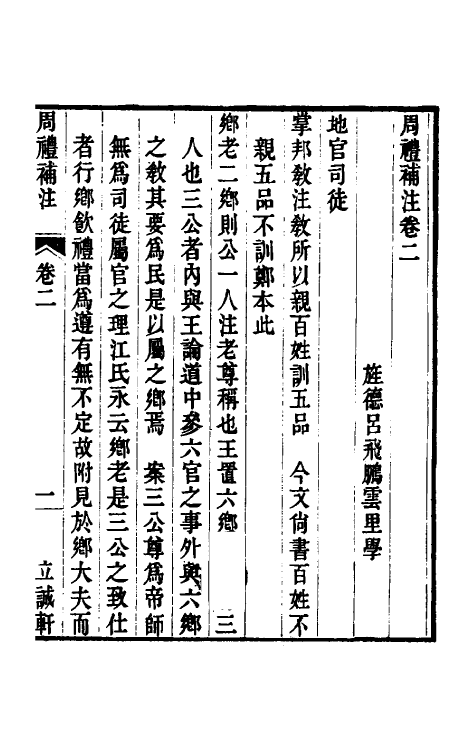 周禮補注卷二
旌德呂飛鵬雲里學
地官司徒
掌邦敎注敎所以親百姓訓五品　今文尙書百姓不
親五品不訓鄭本此
鄉老二鄉則公一人注老尊稱也王置六鄉　三
人也三公者內與王論道中參六官之事外與六鄉
之敎其要爲民是以屬之鄉焉　案三公尊爲帝師
無爲司徒屬官之理江氏永云鄉老是三公之致仕
者行鄉飮禮當爲遵有無不定故附見於鄉大夫而
周禮補注　卷二　一　立誠軒